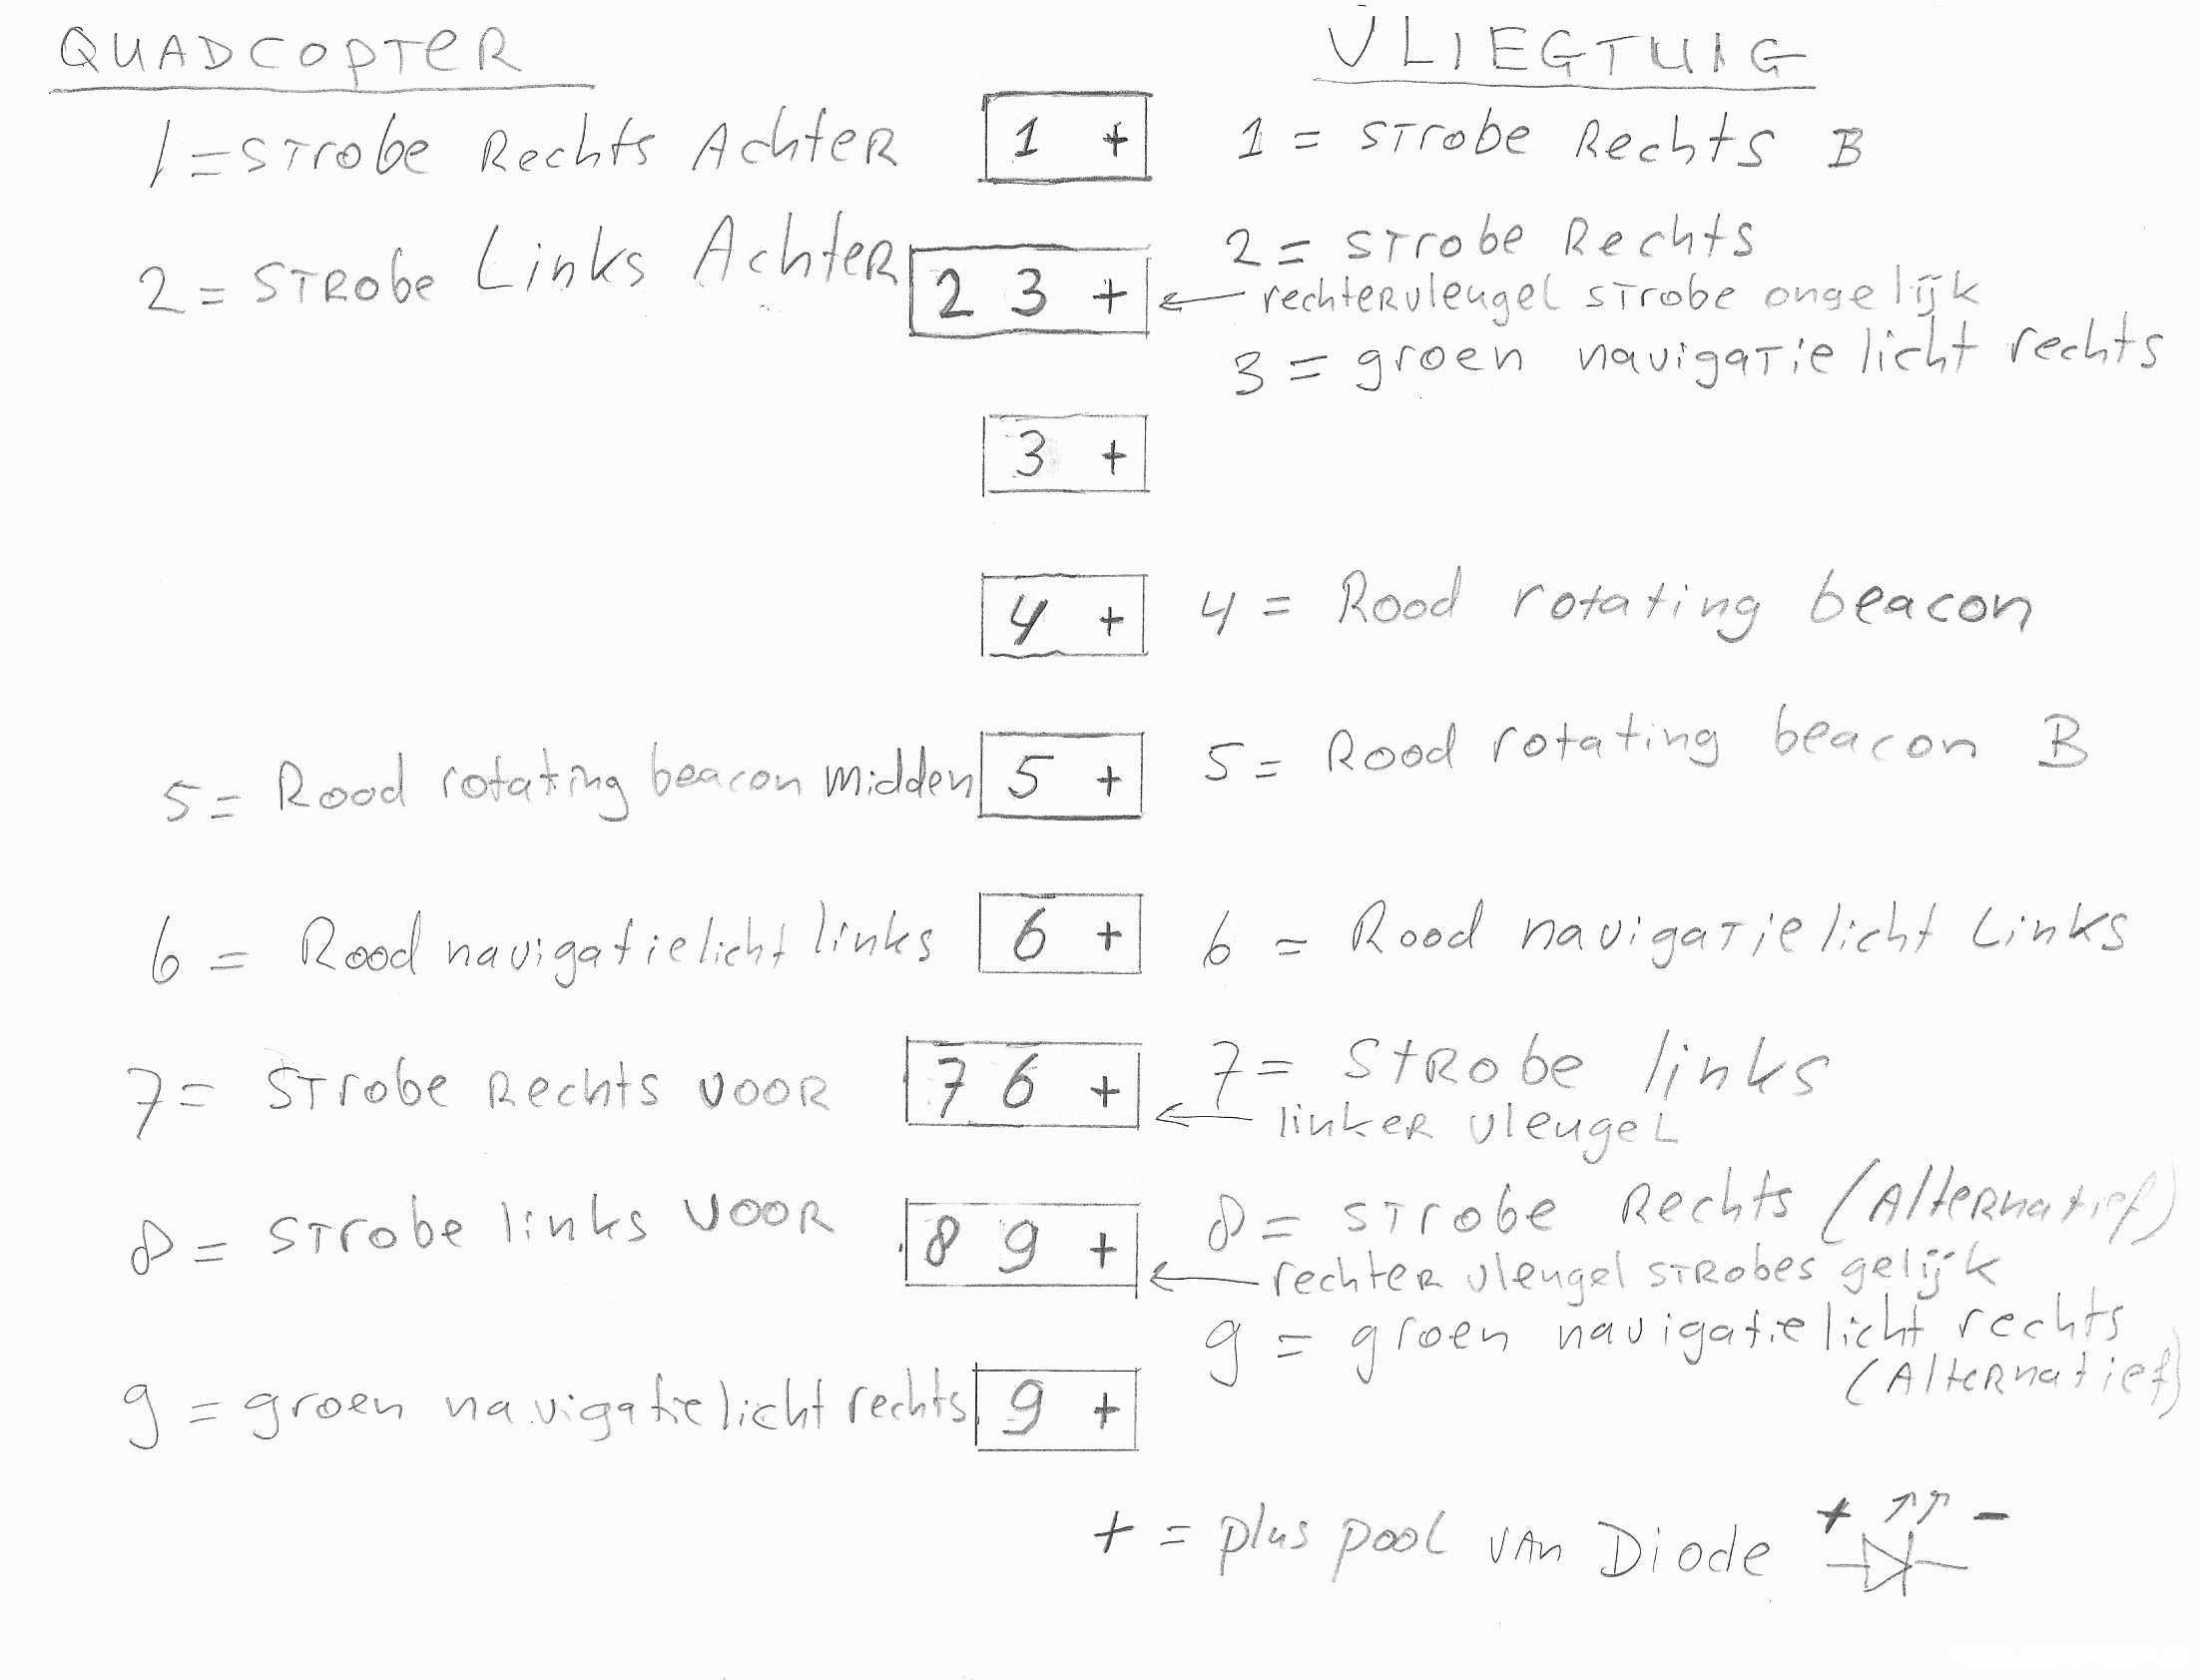 QUADCOPTER
VLIEGTUIG
1 = STrobe Rechts AchteR
1 +
1 = STrobe Rechts B
2 = STRobe Links AchteR
2 3 +
2 = STrobe Rechts
rechtervleugel STrobe ongelijk
3 = groen navigatielicht rechts
3 +
4 +
4 = Rood rotating beacon
5 = Rood rotating beacon midden
5 +
5 = Rood rotating beacon B
6 = Rood navigatielicht links
6 +
6 = Rood navigatielicht Links
7 = STrobe Rechts VOOR
7 6 +
7 = StRobe links
linkeR vleugel
8 = STrobe links VOOR
8 9 +
8 = STrobe Rechts (AlteRnatief)
rechteR vleugel STRobes gelijk
9 = groen navigatielicht rechts
(AlteRnatief)
9 = groen navigatielicht rechts
9 +
+ = plus pool VAn Diode + -